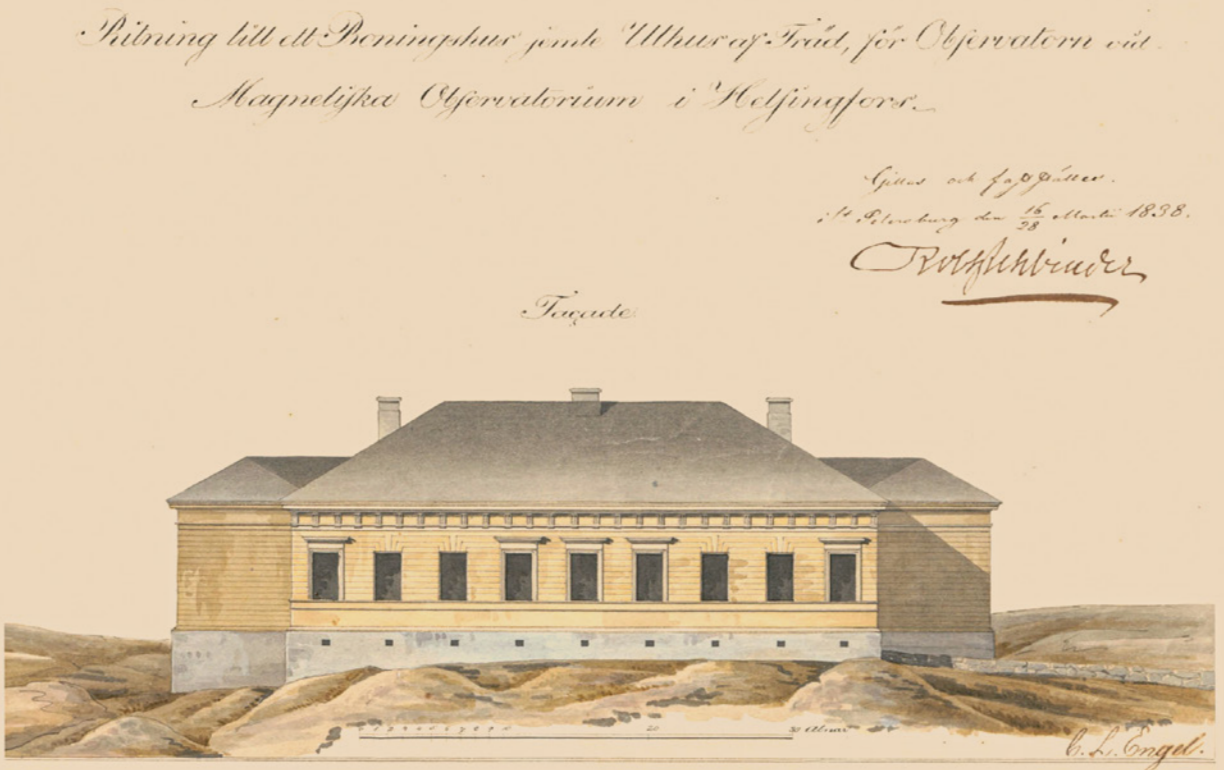 Ritning till ett Boningshus jemte Uthus af Träd, för Observatorn vid
Magnetiska Observatorium i Helsingfors.
Gillas och fastställes.
i St Petersburg den 16/28 Martii 1838.
Rob Rehbinder
Façade
20 30 Alnar
C. L. Engel.